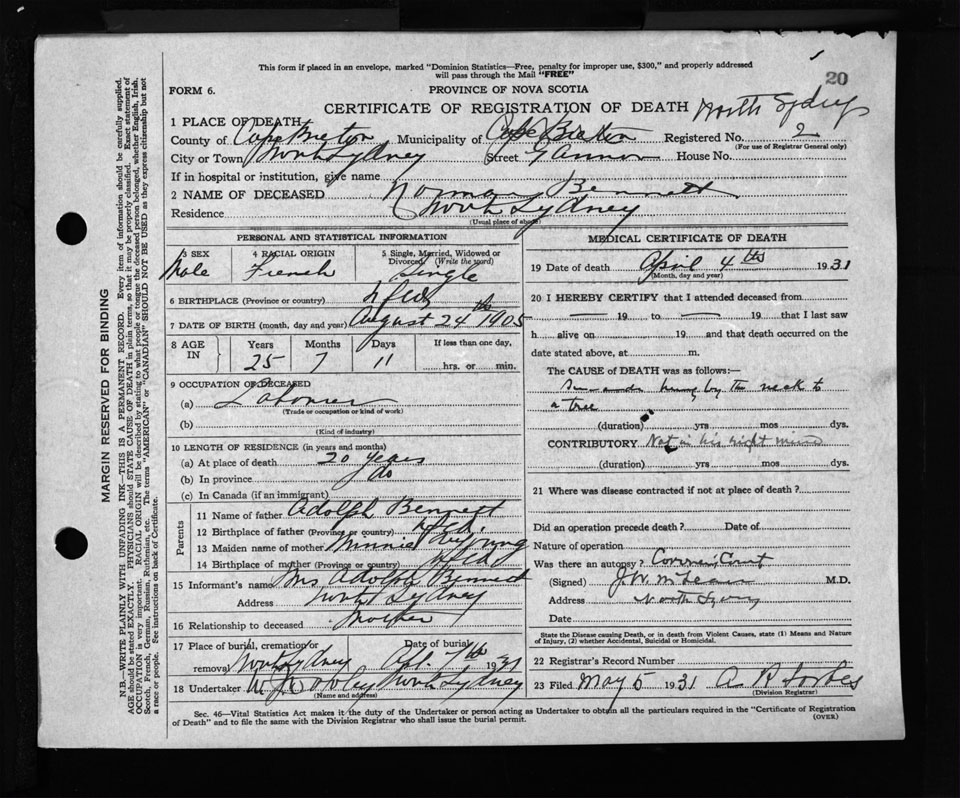 This form if placed in an envelope, marked "Dominion Statistics—Free, penalty for improper use, $300," and properly addressed
will pass through the Mail "FREE"
20
FORM 6.
PROVINCE OF NOVA SCOTIA
CERTIFICATE OF REGISTRATION OF DEATH North Sydney
1 PLACE OF DEATH
County of Cape Breton Municipality of Cape Breton Registered No. 2
(For use of Registrar General only)
City or Town North Sydney Street Gannon House No.
If in hospital or institution, give name
2 NAME OF DECEASED Norman Bennett
Residence North Sydney
(Usual place of abode)
PERSONAL AND STATISTICAL INFORMATION
3 SEX Male
4 RACIAL ORIGIN French
5 Single, Married, Widowed or Divorced (Write the word) Single
6 BIRTHPLACE (Province or country) Nfld
7 DATE OF BIRTH (month, day and year) August 24th 1905
8 AGE IN Years Months Days If less than one day,
25 7 11 hrs. or min.
9 OCCUPATION OF DECEASED
(a) Labourer
(Trade or occupation or kind of work)
(b)
(Kind of industry)
10 LENGTH OF RESIDENCE (in years and months)
(a) At place of death 20 years
(b) In province do
(c) In Canada (if an immigrant)
Parents
11 Name of father Adolph Bennett
12 Birthplace of father (Province or country) Nfld.
13 Maiden name of mother Minnie
14 Birthplace of mother (Province or country) Nfld
15 Informant's name Mrs Adolph Bennett
Address North Sydney
16 Relationship to deceased Mother
17 Place of burial, cremation or removal North Sydney Date of burial 7th 1931
18 Undertaker North Sydney
(Name and address)
MEDICAL CERTIFICATE OF DEATH
19 Date of death April 4th 1931
(Month, day and year)
20 I HEREBY CERTIFY that I attended deceased from
19 to 19 that I last saw
h alive on 19 and that death occurred on
date stated above, at m.
The CAUSE of DEATH was as follows:—
hung by the neck to
a tree
(duration) yrs mos dys.
CONTRIBUTORY Not in his right mind
(duration) yrs mos dys.
21 Where was disease contracted if not at place of death?
Did an operation precede death? Date of
Nature of operation
Was there an autopsy?
(Signed) J. W. McLean M.D.
Address North Sydney
Date
State the Disease causing Death, or in death from Violent Causes, state (1) Means and Nature
of Injury, (2) whether Accidental, Suicidal or Homicidal.
22 Registrar's Record Number
23 Filed May 5 1931 A R Forbes
(Division Registrar)
Sec. 46—Vital Statistics Act makes it the duty of the Undertaker or person acting as Undertaker to obtain all the particulars required in the "Certificate of Registration
of Death" and to file the same with the Division Registrar who shall issue the burial permit. (OVER)
MARGIN RESERVED FOR BINDING
N.B.—WRITE PLAINLY WITH UNFADING INK—THIS IS A PERMANENT RECORD. Every item of information should be carefully supplied.
AGE should be stated EXACTLY. PHYSICIANS should STATE CAUSE OF DEATH in plain terms, so that it may be properly classified. Exact statement of
OCCUPATION is very important. RACIAL ORIGIN will be described by stating to what people or tongue the deceased person belonged, whether English, Irish,
Scotch, French, German, Russian, Ruthenian, etc. The terms "AMERICAN" or "CANADIAN" SHOULD NOT BE USED as they express citizenship but not
a race or people. See instructions on back of Certificate.